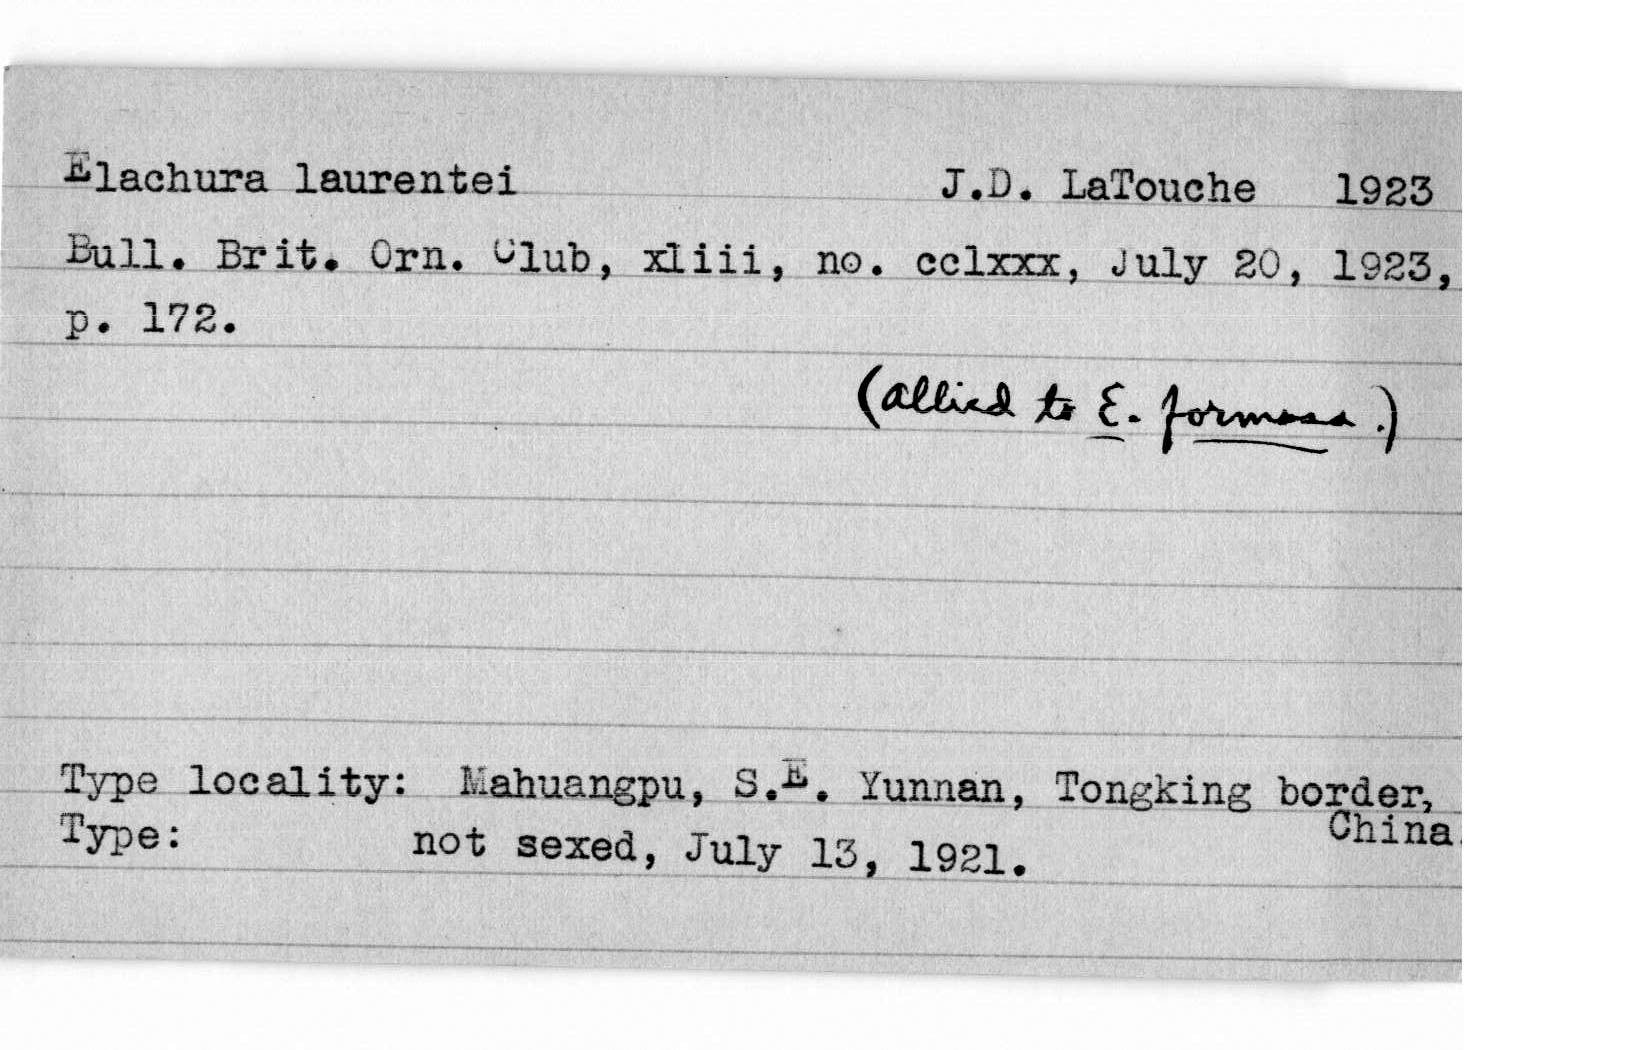 Elachura laurentei J.D. LaTouche 1923
Bull. Brit. Orn. Club, xliii, no. cclxxx, July 20, 1923,
p. 172.
(allied to E. formosa.)
Type locality: Mahuangpu, S.E. Yunnan, Tongking border,
China.
Type: not sexed, July 13, 1921.